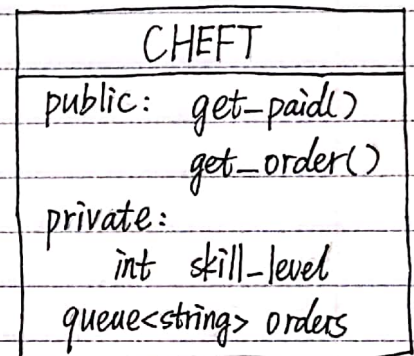 CHEFT
public: get_paid()
get_order()
private:
int skill_level
queue<string> orders